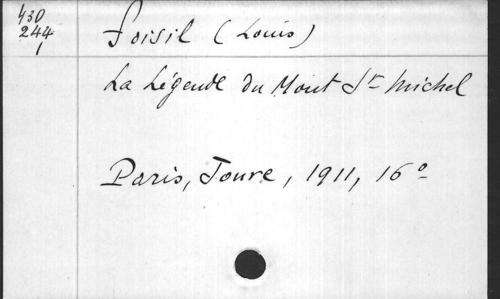 430
244
1
Foisil (Louis)
La Légende du Mont St Michel
Paris, Jouve, 1911, 16°